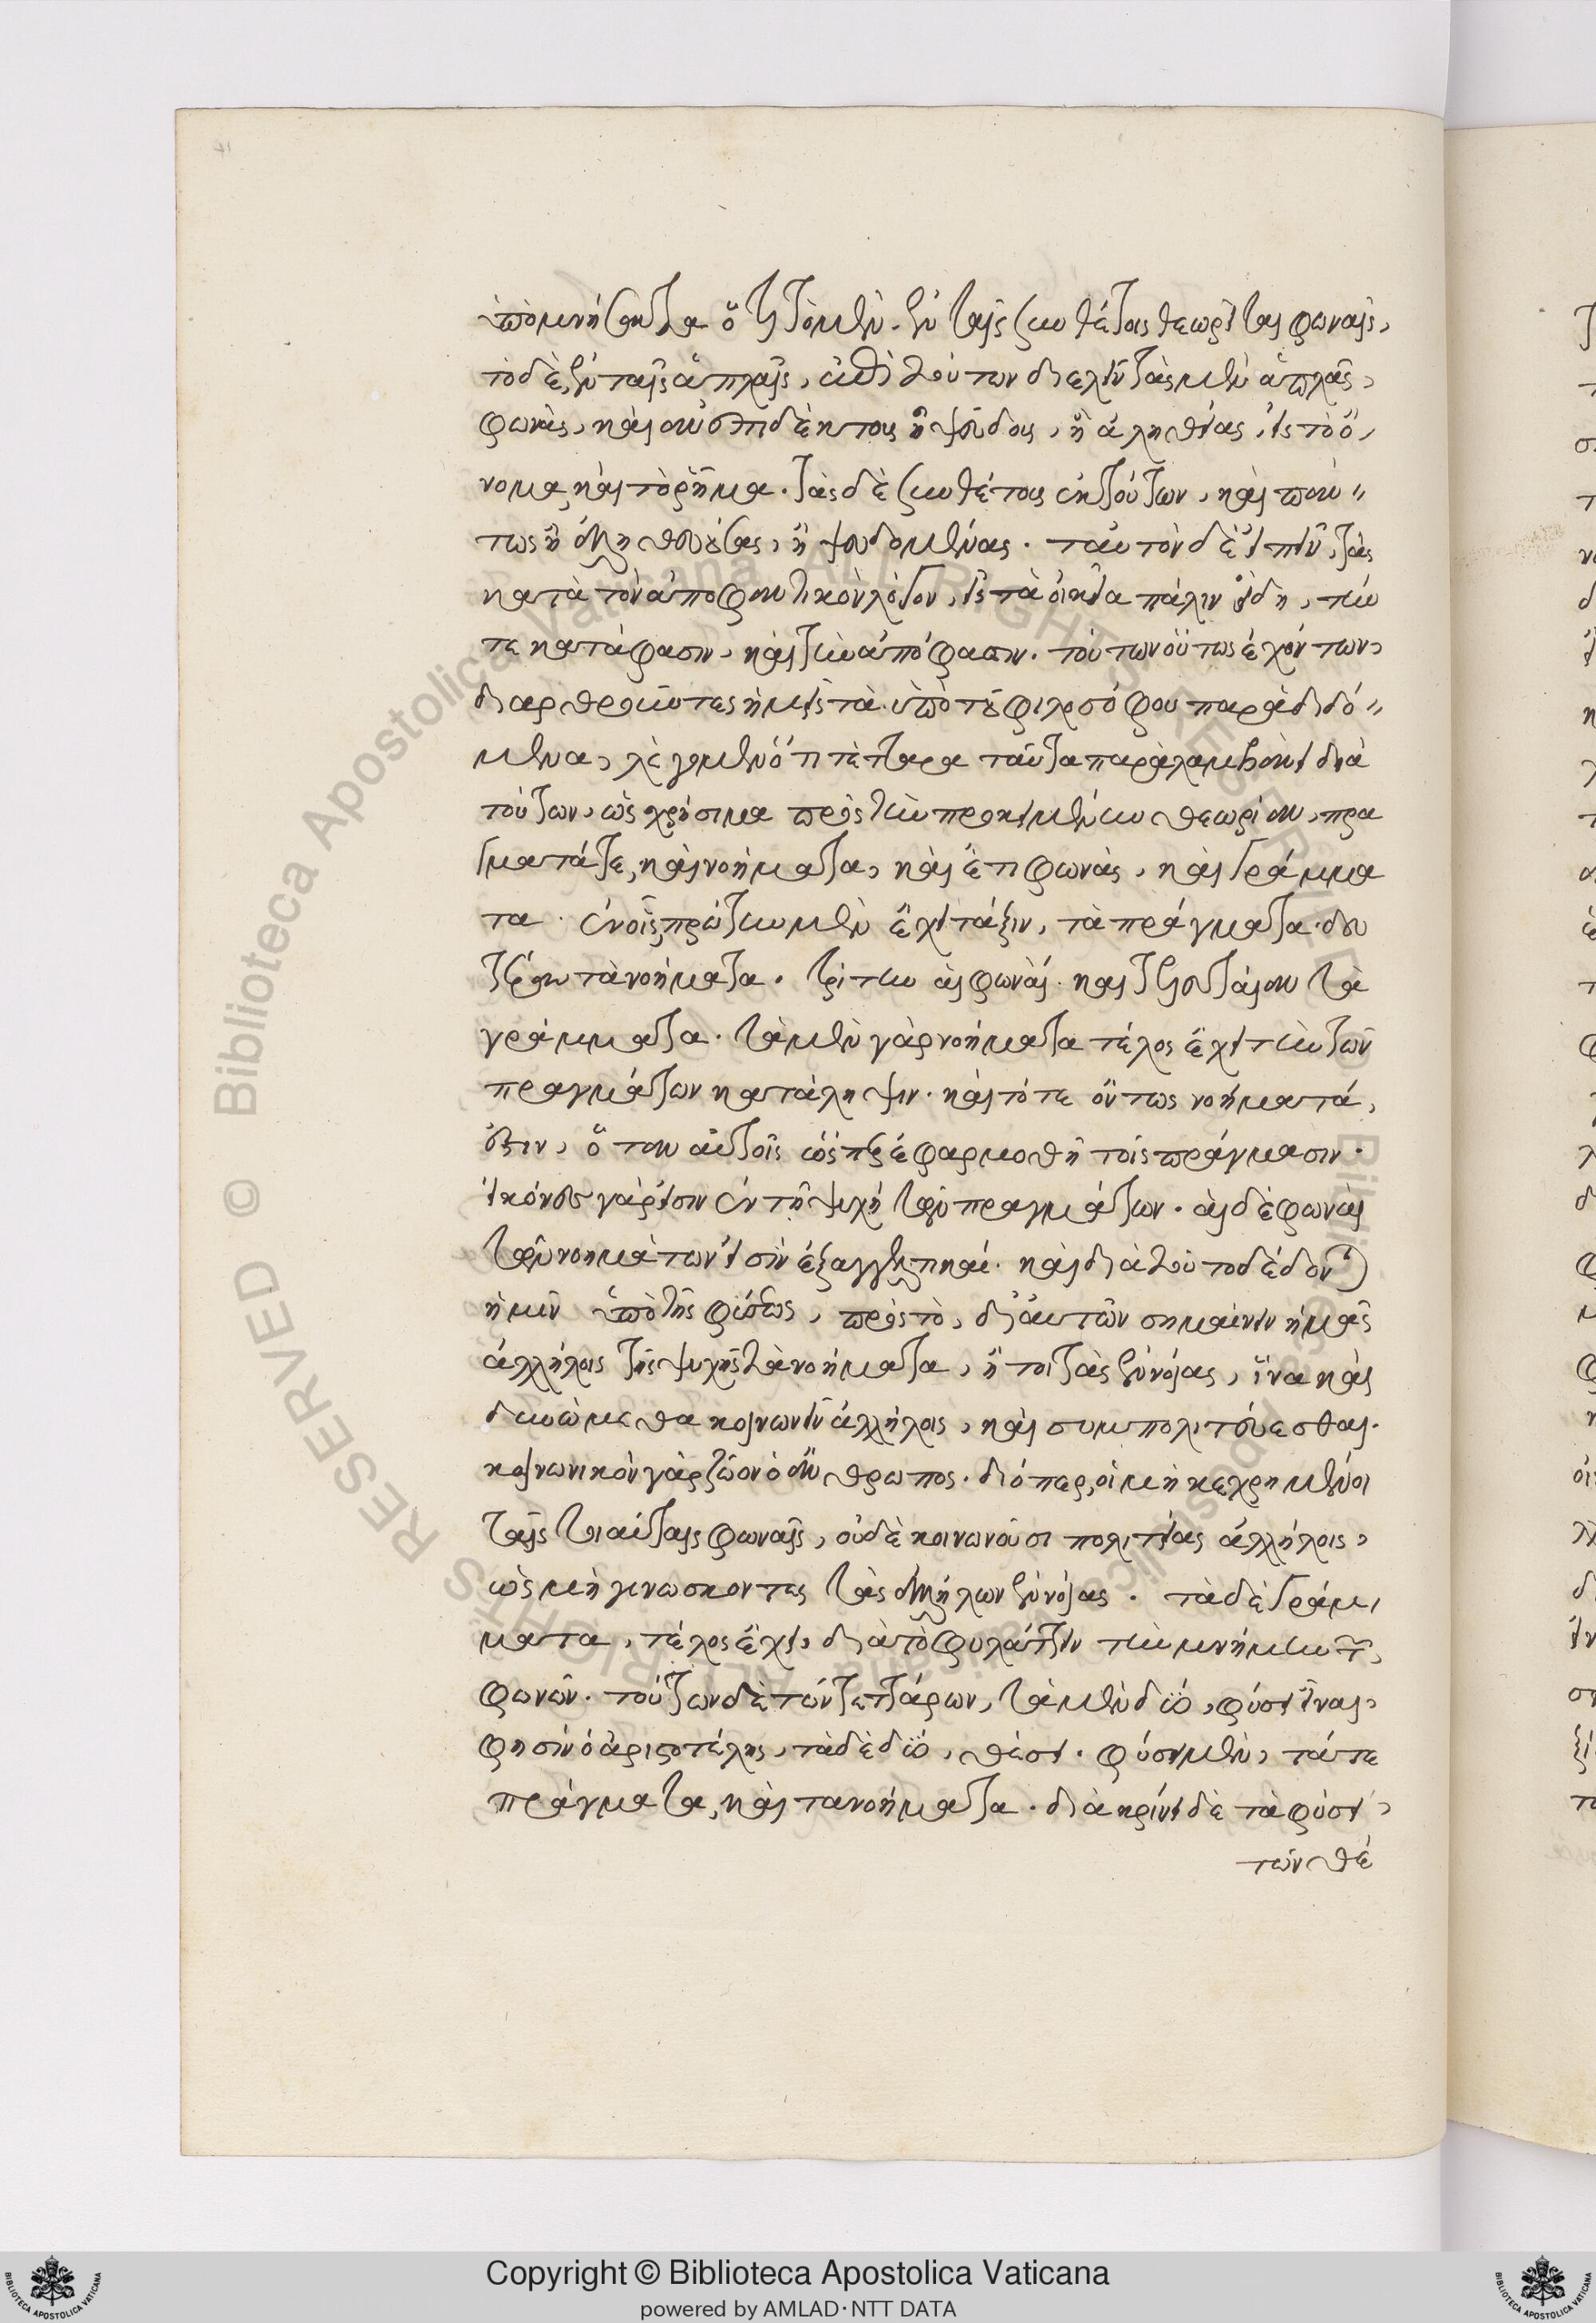 ὑπομνήσαντα ὅτι τὸ μὲν ἐν ταῖς συνθέτοις θεωρεῖται φωναῖς,
τὸ δὲ, ἐν ταῖς ἁπλαῖς, μετὰ τούτων διελεῖν τὰς μὲν ἁπλᾶς,
φωνὰς, καὶ ψεύδους, ἢ ἀληθείας, εἰς τὸ ὄ,
νομα, καὶ τὸ ῥῆμα. τὰς δὲ συνθέτους ἐκ τούτων, καὶ πάν〃
τως ἢ ἀληθευούσας, ἢ ψευδομένας. ταυτὸν δὲ εἰπεῖν, τὰς
κατὰ τὸν ἀποφαντικὸν λόγον, εἰς τὰ οἰκεῖα πάλιν εἴδη, τήν
τε κατάφασιν, καὶ τὴν ἀπόφασιν. τούτων οὕτως ἐχόντων,
διαρθροῦντες ἡμεῖς τὰ ὑπὸ τοῦ φιλοσόφου παραδιδό〃
μενα, λέγομεν ὅτι τέτταρα ταῦτα παραλαμβάνει διὰ
τούτων, ὡς χρήσιμα πρὸς τὴν προκειμένην θεωρίαν, πρά
γματά τε, καὶ νοήματα, καὶ ἔτι φωνὰς, καὶ γράμμα
τα. ἐν οἷς, πρώτην μὲν ἔχει τάξιν, τὰ πράγματα. δευ
τέραν τὰ νοήματα. τρίτην αἱ φωναί. καὶ τελευταίαν τὰ
γράμματα. τὰ μὲν γὰρ νοήματα τέλος ἔχει τὴν τῶν
πραγμάτων κατάληψιν. καὶ τότε ὄντως νοήματά,
ἐστιν, ὅταν αὐτοῖς ὥσπερ ἐφαρμοσθῇ τοῖς πράγμασιν.
εἰκόνες γάρ εἰσιν ἐν τῇ ψυχῇ τῶν πραγμάτων. αἱ δὲ φωναὶ
τῶν νοημάτων εἰσὶν ἐξαγγελτικαί. καὶ διὰ τοῦτο δέδονται
ἡμῖν ὑπὸ τῆς φύσεως, πρὸς τὸ, δι' αὐτῶν σημαίνειν ἡμᾶς
ἀλλήλοις τῆς ψυχῆς τὰ νοήματα, ἤτοι τὰς ἐννοίας, ἵνα καὶ
δυνώμεθα κοινωνεῖν ἀλλήλοις, καὶ συμπολιτεύεσθαι.
κοινωνικὸν γὰρ ζῷον ὁ ἄνθρωπος. διόπερ, οἱ μὴ κεχρημένοι
ταῖς τοιαύταις φωναῖς, οὐδὲ κοινωνοῦσι πολιτείας ἀλλήλοις,
ὡς μὴ γινώσκοντες τὰς ἀλλήλων ἐννοίας. τὰ δὲ γράμ,
ματα, τέλος ἔχει, διὰ τὸ φυλάττειν τὴν μνήμην τῶν,
φωνῶν. τούτων δὲ τῶν τεττάρων, τὰ μὲν δύο, φύσει εἶναι,
φησὶν ὁ ἀριστοτέλης, τὰ δὲ δύο, θέσει. φύσει μὲν, τά τε
πράγματα, καὶ τὰ νοήματα. διακρίνει δὲ τὰ φύσει,
τῶν θέ